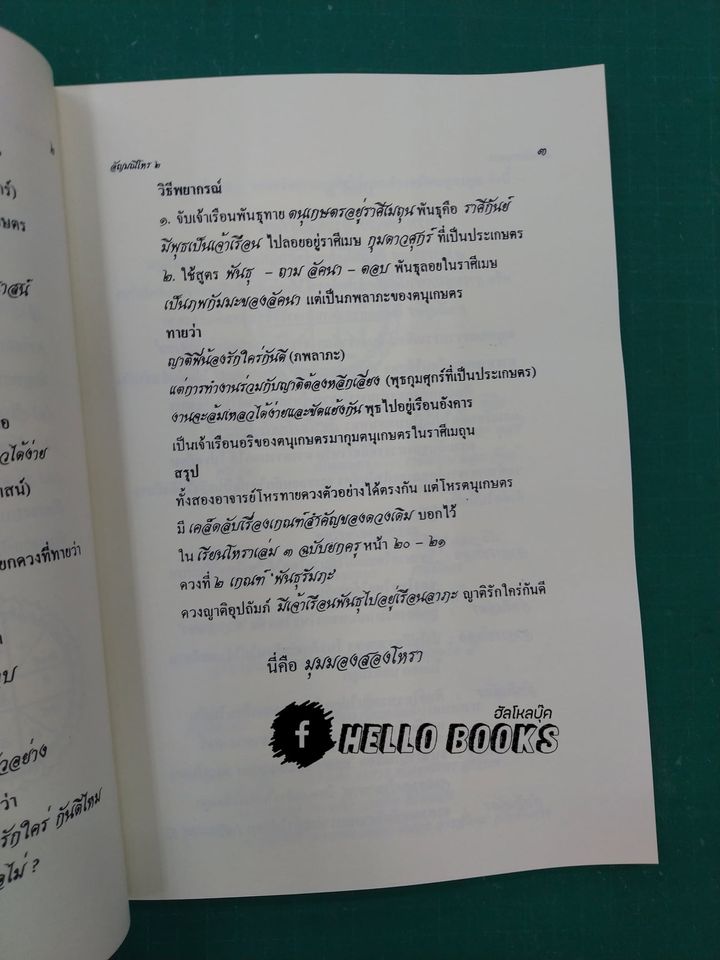 ๒
ร์)
กษตร
าสน์
อ
วได้ง่าย
สน์)
ยกดวงที่ทายว่า
ตัวอย่าง
ว่า
รักใคร่ กันดีไหม
ไม่ ?
สัญมณีโหร ๒
๓
วิธีพยากรณ์
๑. จับเจ้าเรือนพันธุทาย ตนุเกษตรอยู่ราศีเมถุน พันธุคือ ราศีกันย์
มีพุธเป็นเจ้าเรือน ไปลอยอยู่ราศีเมษ กุมดาวศุกร์ ที่เป็นประเกษตร
๒. ใช้สูตร พันธุ – ถาม ลัคนา – ตอบ พันธุลอยในราศีเมษ
เป็นภพกัมมะของลัคนา แต่เป็นภพลาภะของตนุเกษตร
ทายว่า
ญาติพี่น้องรักใคร่กันดี (ภพลาภะ)
แต่การทำงานร่วมกับญาติต้องหลีกเลี่ยง (พุธกุมศุกร์ที่เป็นประเกษตร)
งานจะล้มเหลวได้ง่ายและขัดแย้งกัน พุธไปอยู่เรือนอังคาร
เป็นเจ้าเรือนอริของตนุเกษตรมากุมตนุเกษตรในราศีเมถุน
สรุป
ทั้งสองอาจารย์โหรทายดวงตัวอย่างได้ตรงกัน แต่โหรตนุเกษตร
มี เคล็ดลับเรื่องเกณฑ์สำคัญของดวงเดิม บอกไว้
ใน เรียนโหราเล่ม ๓ ฉบับยกครู หน้า ๒๐ – ๒๑
ดวงที่ ๒ เกณฑ์ "พันธุรัมภะ
ดวงญาติอุปถัมภ์ มีเจ้าเรือนพันธุไปอยู่เรือนลาภะ ญาติรักใคร่กันดี
นี่คือ มุมมองสองโหรา
ฮัลโหลบุ๊ค
f HELLO BOOKS